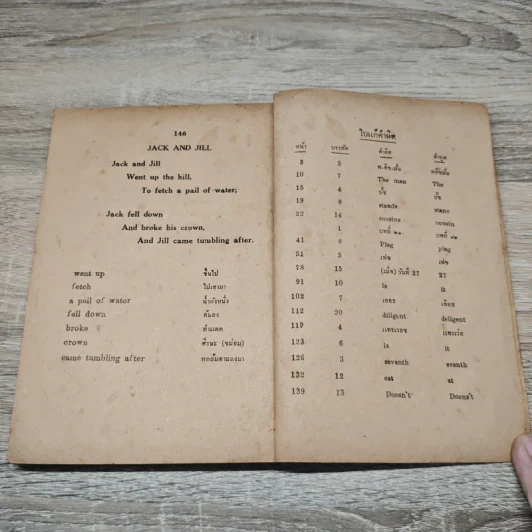 146
JACK AND JILL
Jack and Jill
Went up the hill,
To fetch a pail of water;
Jack fell down
And broke his crown,
And Jill came tumbling after.
went up ขึ้นไป
fetch ไปเอามา
a pail of water น้ำถังหนึ่ง
fell down ล้มลง
broke ทำแตก
crown ศีรษะ (จอม)
came tumbling after หกล้มตามลงมา
ใบแก้คำผิด
หน้า บรรทัด คำผิด คำถูก
8 5
10 7 The man The
15 4
19 8 stands stand
22 14 cousins cousin
1 บทที่ ๒๑ บทที่
41 8 Plag plag
51 5
78 15 (เมื่อ) วันที่ 27 27
91 10 is it
102 7
112 20 diligent deligent
119 4
123 6 is it
126 3 seventh seventh
132 12 eat at
139 13 Doesn't Doens't